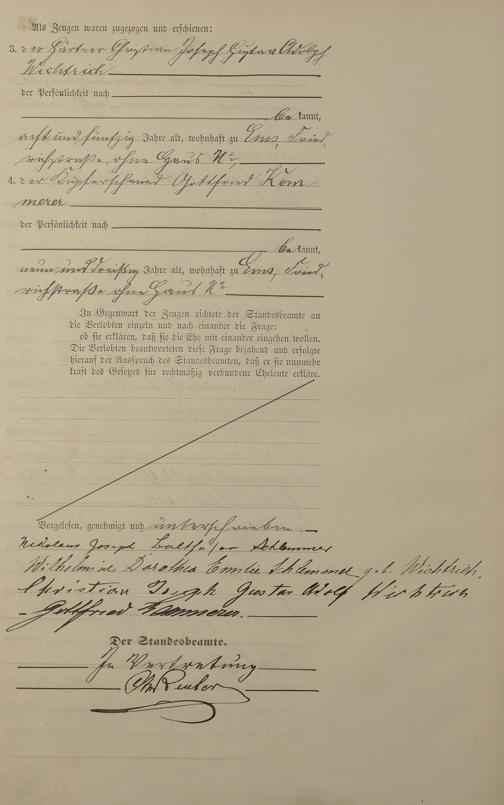 Als Zeugen waren zugezogen und erschienen:
3. der Gärtner Christian Joseph Gustav Adolph
Wichtrich
der Persönlichkeit nach
bekannt,
acht und fünfzig Jahre alt, wohnhaft zu Ems, Fried-
richstraße ohne Haus No,
4. der Kupferschmied Gottfried Kem-
merer
der Persönlichkeit nach
bekannt,
neun und dreißig Jahre alt, wohnhaft zu Ems, Fried-
richstraße ohne Haus No
In Gegenwart der Zeugen richtete der Standesbeamte an
die Verlobten einzeln und nach einander die Frage:
ob sie erklären, daß sie die Ehe mit einander eingehen wollen.
Die Verlobten beantworteten diese Frage bejahend und erfolgte
hierauf der Ausspruch des Standesbeamten, daß er sie nunmehr
kraft des Gesetzes für rechtmäßig verbundene Eheleute erkläre.
Vorgelesen, genehmigt und unterschrieben
Nikolaus Joseph Balthasar Schlemmer
Wilhelmine Dorothea Emilie Schlemmer geb. Wichtrich.
Christian Joseph Gustav Adolf Wichtrich
Gottfried Kemmerer.
Der Standesbeamte.
In Vertretung